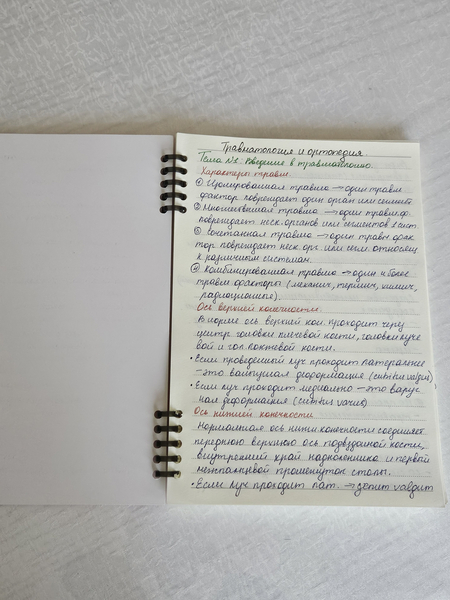 Травматология и ортопедия.
Тема №1: Введение в травматологию.
Характеры травм
① Изолированная травма → один травм
фактор повреждает один орган или сегмент.
② Множественная травма → один травм. ф.
повреждает неск. органов или сегментов 1 сист.
③ Сочетанная травма → один травм фак-
тор повреждает неск. орг. или сегм. относящ
к различным системам.
④ Комбинированная травма → один и более
травм факторы (механич, термич, химич,
радиационные).
Ось верхней конечности.
В норме ось верхней кон. проходит через
центр головки плечевой кости, головки луче
вой и гол локтевой кости.
• Если проведенный луч проходит латеральнее
- это вальгусная деформация (cubitus valgus)
• Если луч проходит медиально → это варус
ная деформация (cubitus varus)
Ось нижней конечности
Нормальная ось нижн конечности соединяет
переднюю верхнюю ось подвздошной кости,
внутренний край надколенника и первый
межпальцевой промежуток стопы.
• Если луч проходит лат. → genum valgum